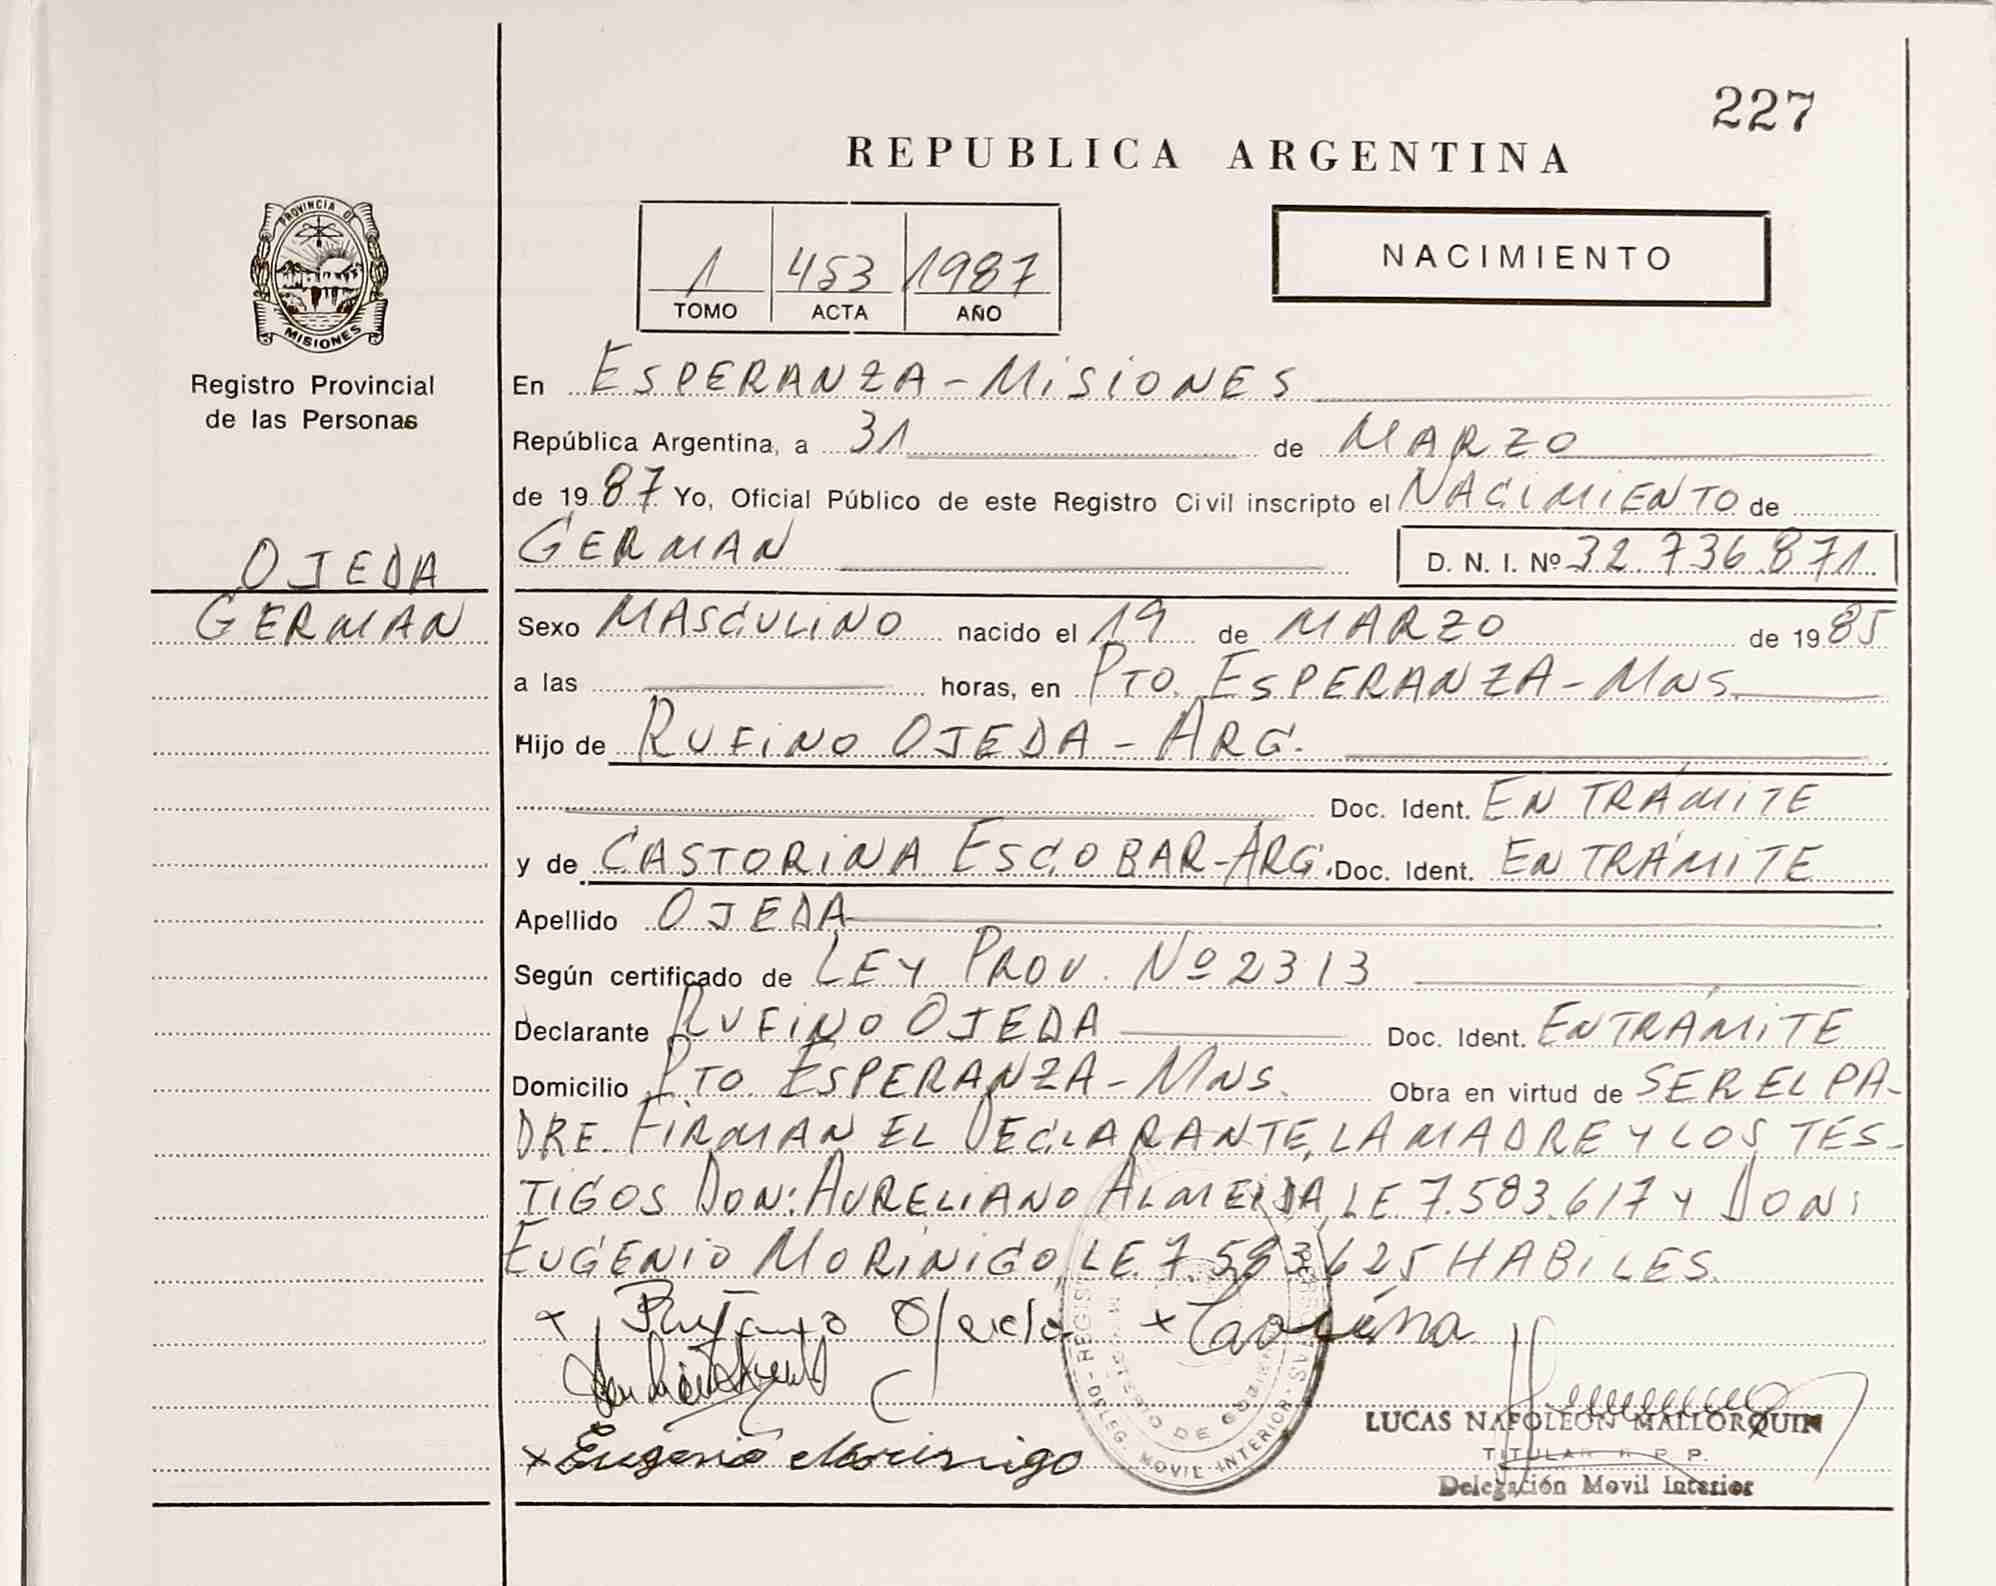 227
REPUBLICA ARGENTINA
NACIMIENTO
1 453 1987
TOMO ACTA AÑO
PROVINCIA DE
MISIONES
Registro Provincial
de las Personas
OJEDA
GERMAN
En ESPERANZA - MISIONES
República Argentina, a 31 de MARZO
de 1987 Yo, Oficial Público de este Registro Civil inscripto el NACIMIENTO de
GERMAN D. N. I. Nº 32.736.871
Sexo MASCULINO nacido el 19 de MARZO de 1985
a las horas, en PTO. ESPERANZA - MNS.
Hijo de RUFINO OJEDA - ARG.
Doc. Ident. EN TRÁMITE
y de CASTORINA ESCOBAR - ARG. Doc. Ident. EN TRÁMITE
Apellido OJEDA
Según certificado de LEY PROV. Nº 2313
Declarante RUFINO OJEDA Doc. Ident. EN TRÁMITE
Domicilio PTO. ESPERANZA - MNS. Obra en virtud de SER EL PA-
DRE. FIRMAN EL DECLARANTE, LA MADRE Y LOS TES-
TIGOS DON: AURELIANO ALMEIDA, LE 7.583.617 Y DON:
EUGENIO MORINIGO, LE. 7.583.625 HABILES.
x Ojeda x
x Eugenio Morinigo
DELEG. MOVIL INTERIOR
LUCAS NAPOLEON MALLORQUIN
TITULAR R. P. P.
Delegación Movil Interior